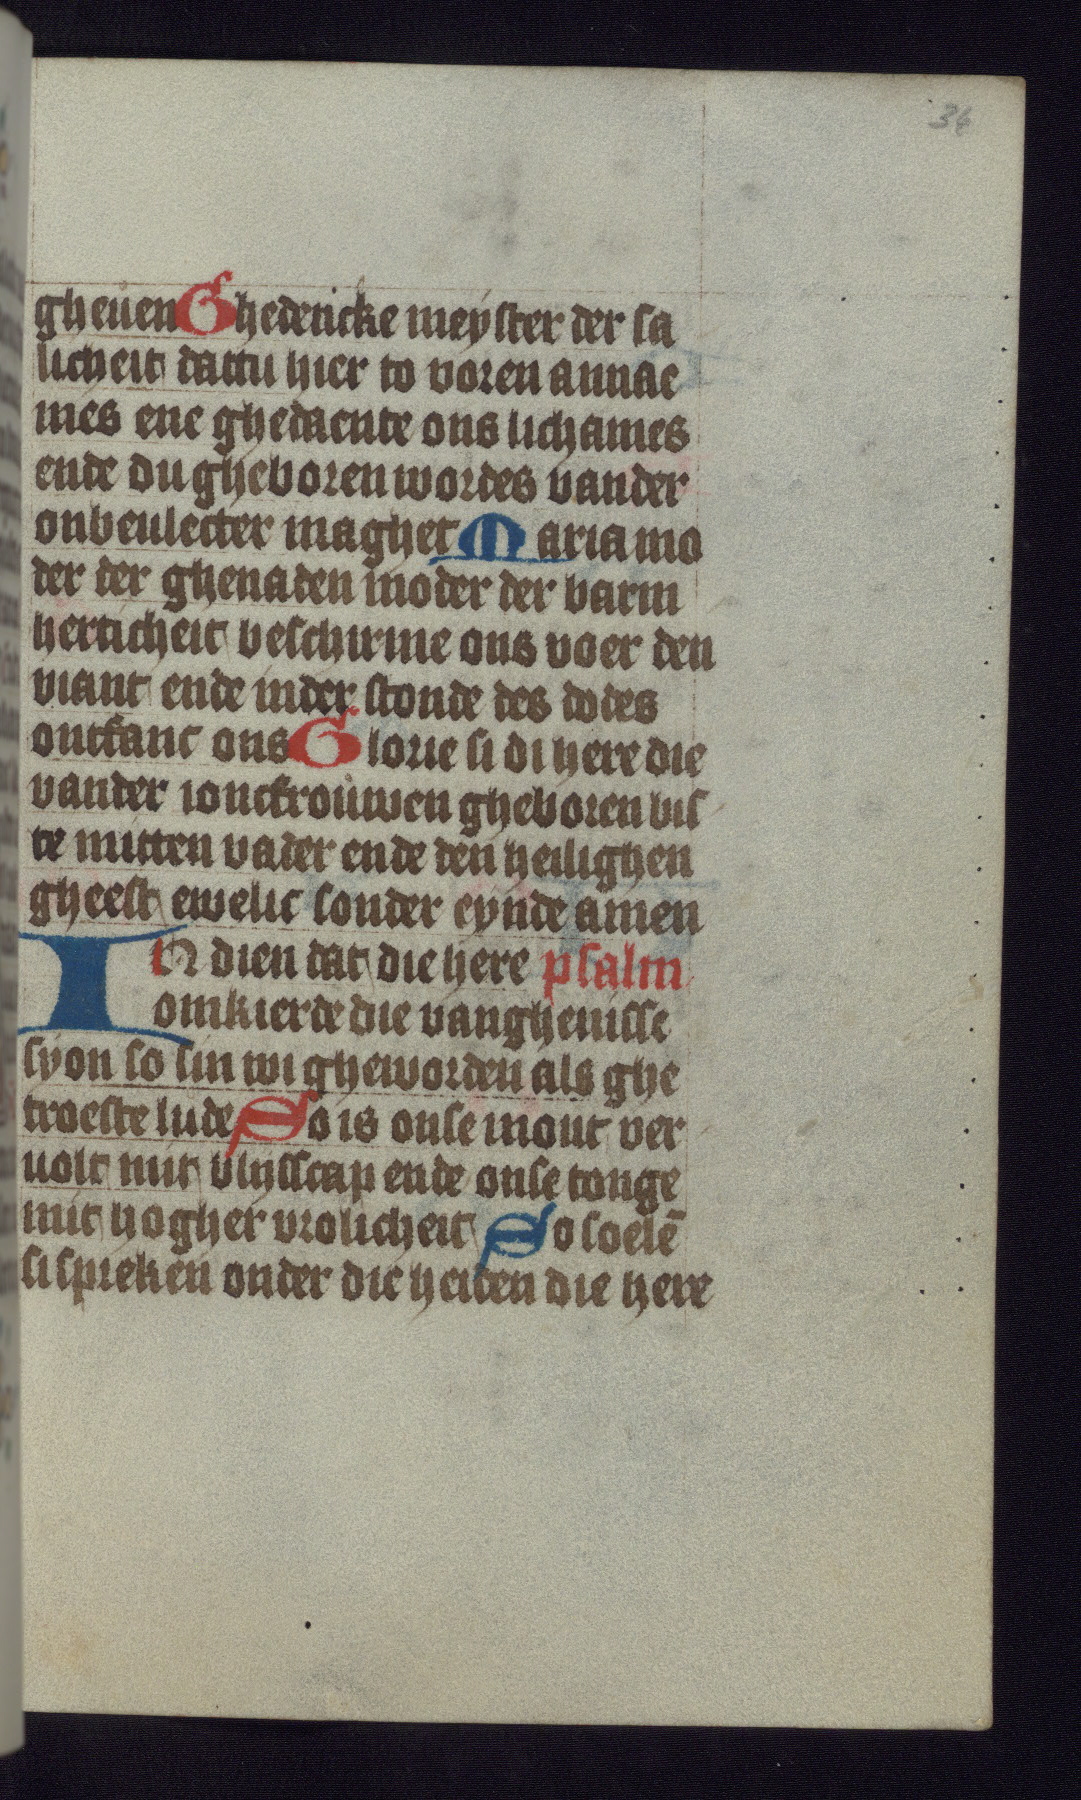 34
gheuen Ghedencke meyster der sa
licheit dattu hier to voren annae
mes ene ghedaente ons lichames
ende du gheboren wordes vander
onbeulecter maghet Maria mo
der der ghenaden moder der barm
herticheit beschirme ons voer den
viant ende inder stonde des dodes
ontfanc ons Glorie si di here die
vander ionckrouwen gheboren bis
te mitten vader ende den heilighen
gheest ewelic sonder eynde amen
In dien dat die here psalm
omkierde die vanghenisse
syon so sin wi gheworden als ghe
troeste lude So is onse mont ver
uolt mit blysscap ende onse tonge
mit hogher vrolicheit So soelē
si spreken onder die heiden die here